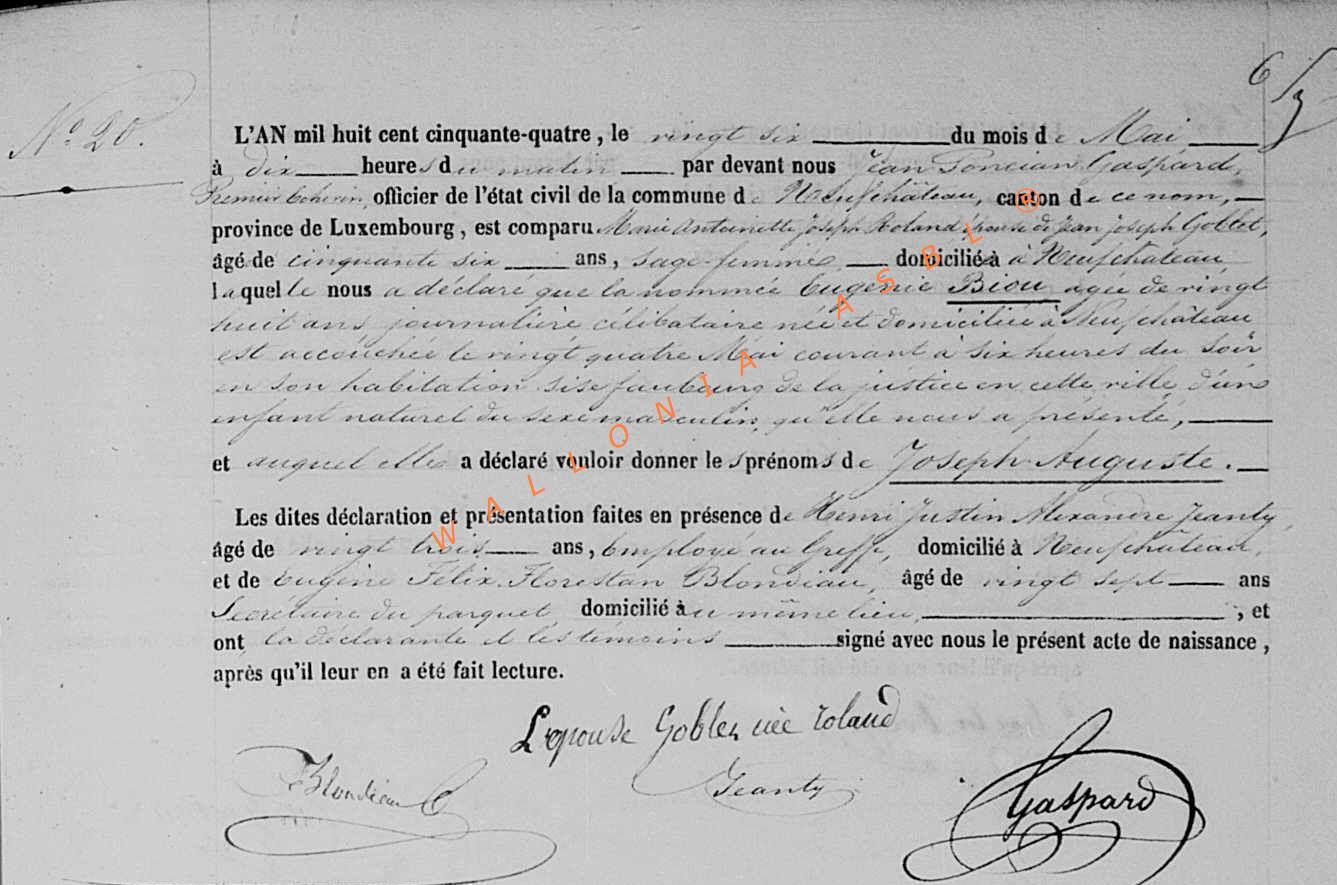 6/3
N° 20.
L'AN mil huit cent cinquante-quatre, le vingt six du mois de Mai
à dix heures du matin par devant nous Jean Poncian Gaspard,
Premier Echevin, officier de l'état civil de la commune de Neufchâteau, canton de ce nom,
province de Luxembourg, est comparu Marie Antoinette Joseph Roland épouse de Jean joseph Goblet,
âgé de cinquante six ans, sage-femme, domicilié à Neufchâteau
laquelle nous a déclaré que la nommée Eugénie Biou agée de vingt
huit ans journalière célibataire née et domiciliée à Neufchâteau
est accouchée le vingt quatre Mai courant à six heures du soir
en son habitation sise faubourg de la justice en cette ville, d'un
enfant naturel du sexe masculin, qu'elle nous a présenté,
et auquel elle a déclaré vouloir donner les prénoms de Joseph Auguste.
Les dites déclaration et présentation faites en présence de Henri Justin Alexandre Jeanty,
âgé de vingt trois ans, Employé au Greffe, domicilié à Neufchâteau,
et de Eugène Félix Florestan Blondiau, âgé de vingt sept ans
Secrétaire du parquet domicilié au même lieu, , et
ont la déclarante et les témoins signé avec nous le présent acte de naissance,
après qu'il leur en a été fait lecture.
L'epouse Goblet née roland
Blondiau
Jeanty
Gaspard
WALLONIA ASBL ®